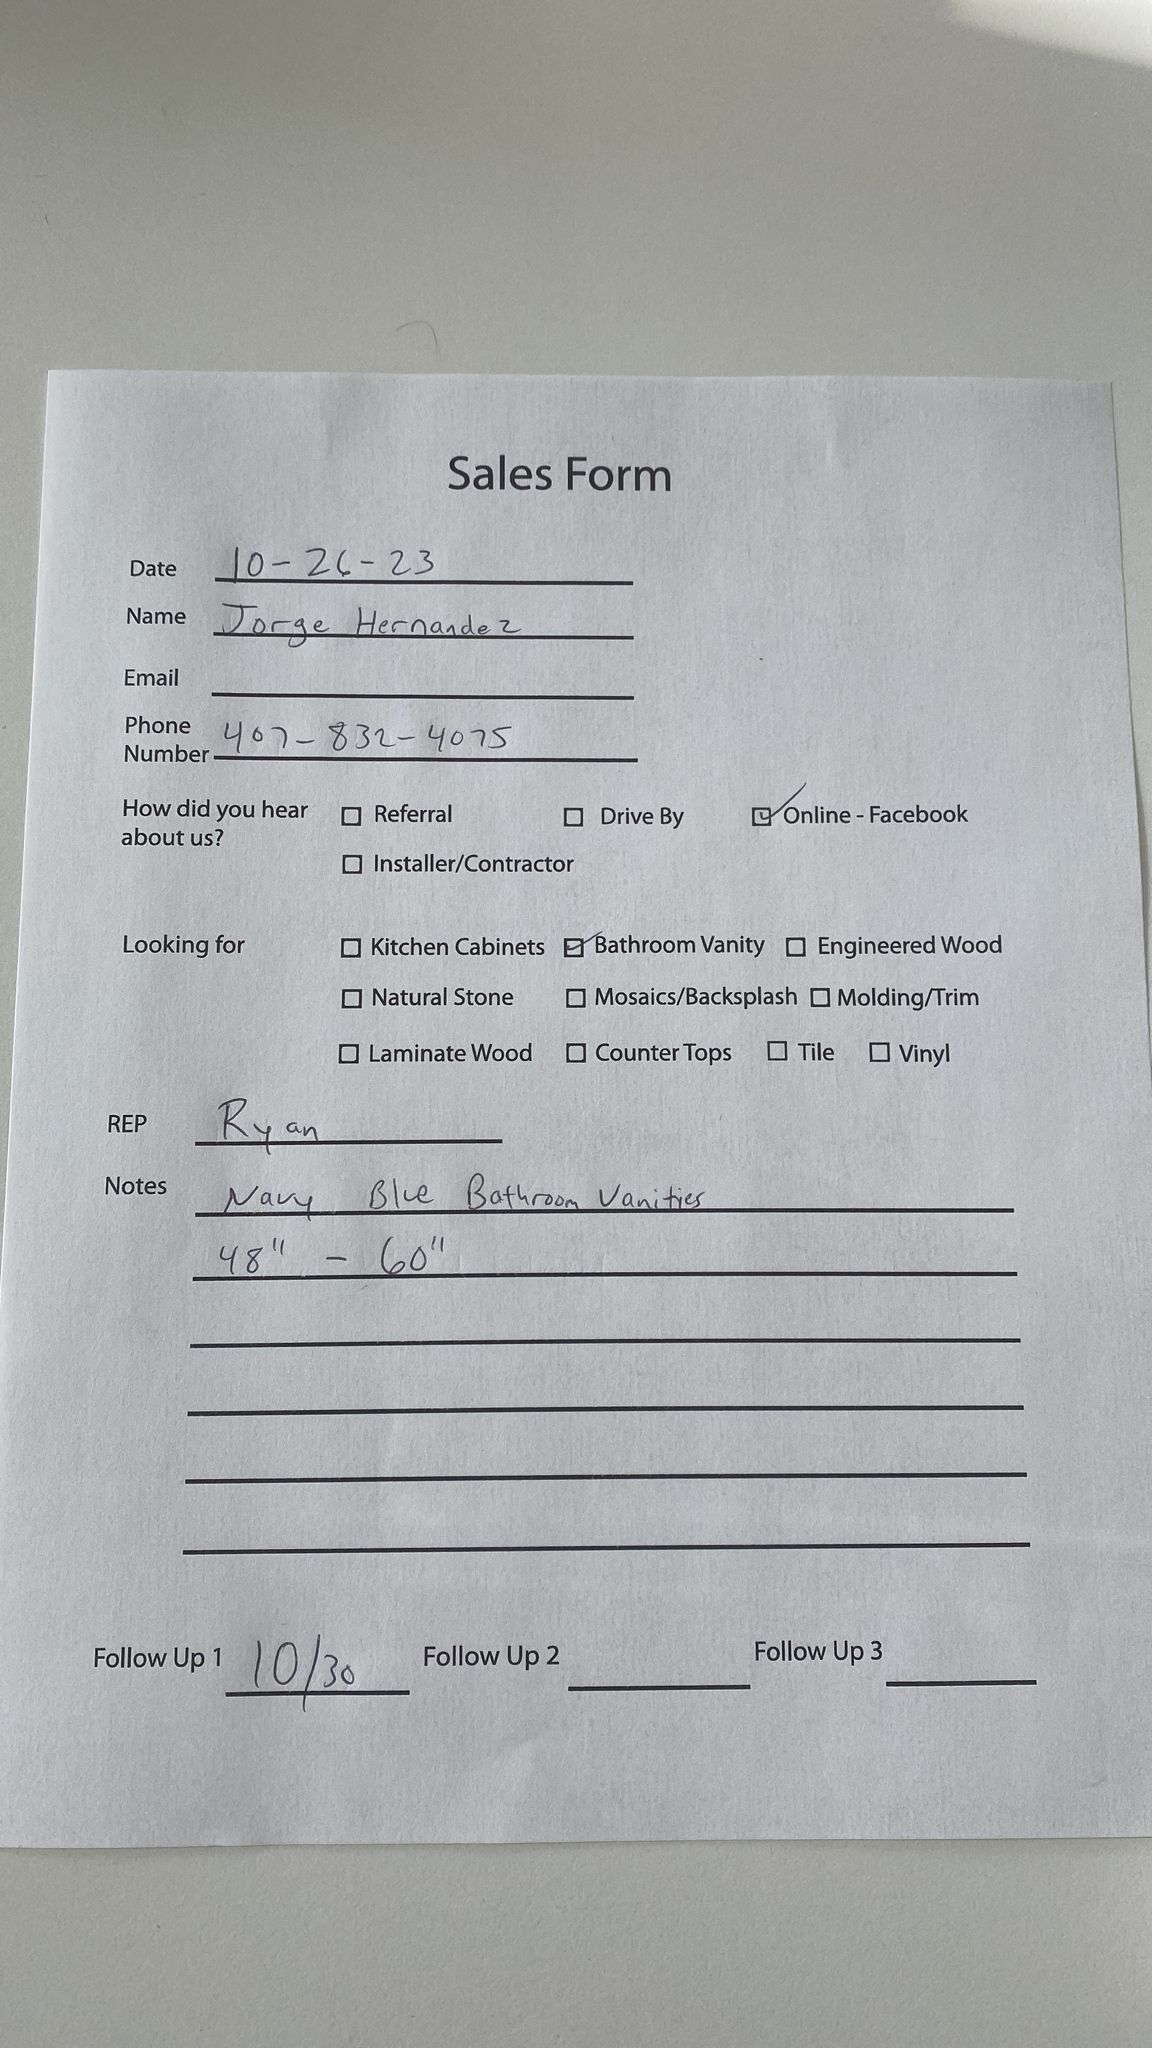 Sales Form
Date 10-26-23
Name Jorge Hernandez
Email
Phone Number 407-832-4075
How did you hear about us? ☐ Referral ☐ Drive By ☑ Online - Facebook
☐ Installer/Contractor
Looking for ☐ Kitchen Cabinets ☑ Bathroom Vanity ☐ Engineered Wood
☐ Natural Stone ☐ Mosaics/Backsplash ☐ Molding/Trim
☐ Laminate Wood ☐ Counter Tops ☐ Tile ☐ Vinyl
REP Ryan
Notes Navy Blue Bathroom Vanities
48" - 60"
Follow Up 1 10/30 Follow Up 2 Follow Up 3